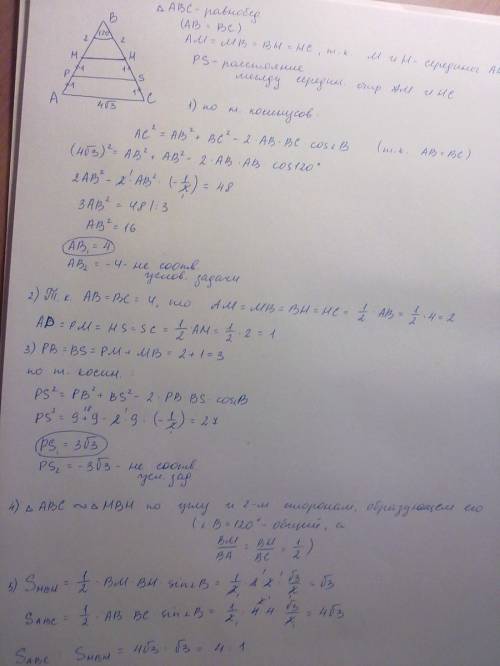 △ABC - равнобед
(AB = BC)
AM = MB = BH = HC, т.к. M и H - середины
PS - расстояние
между середин. отр AM и HC
B
120°
2 2
M H
1 1
P S
1 1
A C
4√3
1) по т. косинусов.
AC² = AB² + BC² - 2·AB·BC cos∠B (т.к. AB = BC)
(4√3)² = AB² + AB² - 2·AB·AB cos120°
2AB² - 2·AB²·(-1/2) = 48
3AB² = 48 |:3
AB² = 16
AB₁ = 4
AB₂ = -4 - не соотв.
услов. задачи
2) Т.к. AB = BC = 4, то AM = MB = BH = HC = 1/2·AB = 1/2·4 = 2
AP = PM = HS = SC = 1/2·AM = 1/2·2 = 1
3) PB = BS = PM + MB = 2 + 1 = 3
по т. косин.
PS² = PB² + BS² - 2·PB·BS·cosB
PS² = 9 + 9 - 2·9·(-1/2) = 27
PS₁ = 3√3
PS₂ = -3√3 - не соотв.
усл. зад
4) △ABC ~ △MBH по углу и 2-м сторонам, образующем его
(∠B = 120° - общий, а
BM/BA = BH/BC = 1/2)
5) SMBH = 1/2·BM·BH·sin∠B = 1/2·2·2·√3/2 = √3
SABC = 1/2·AB·BC sin∠B = 1/2·4·4·√3/2 = 4√3
SABC : SMBH = 4√3 : √3 = 4:1